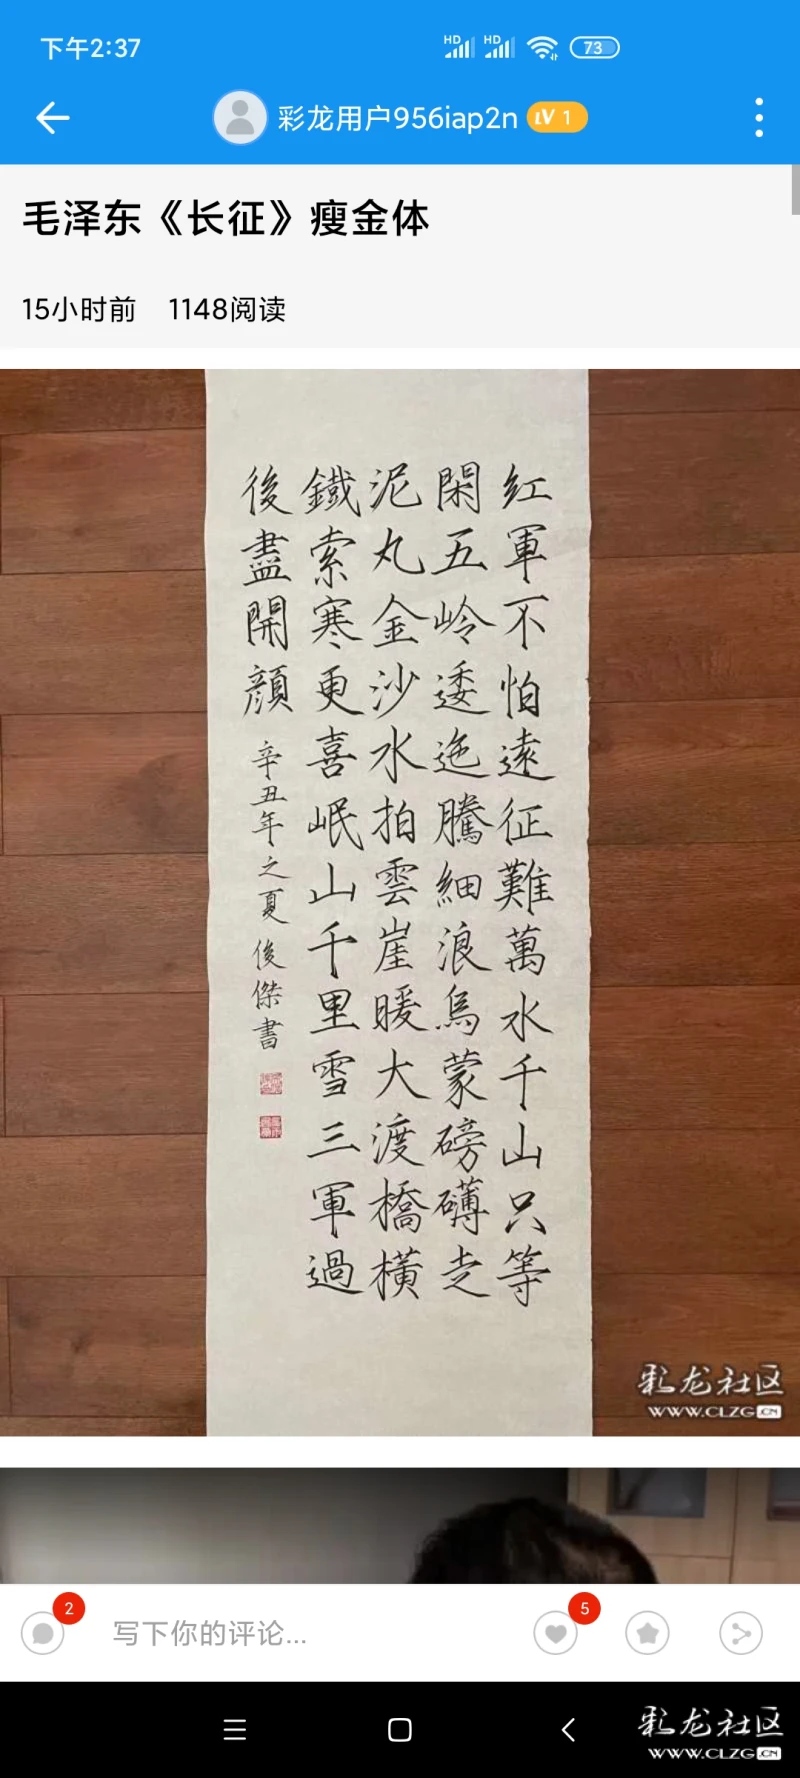 下午2:37
HD HD 73
彩龙用户956iap2n LV 1
毛泽东《长征》瘦金体
15小时前 1148阅读
红軍不怕遠征難萬水千山只等
閑五岭逶迤騰細浪烏蒙磅礴走
泥丸金沙水拍雲崖暖大渡橋橫
鐵索寒更喜岷山千里雪三軍過
後盡開顔
辛丑年之夏俊傑書
彩龙社区
WWW.CLZG.CN
2
写下你的评论...
5
彩龙社区
WWW.CLZG.CN